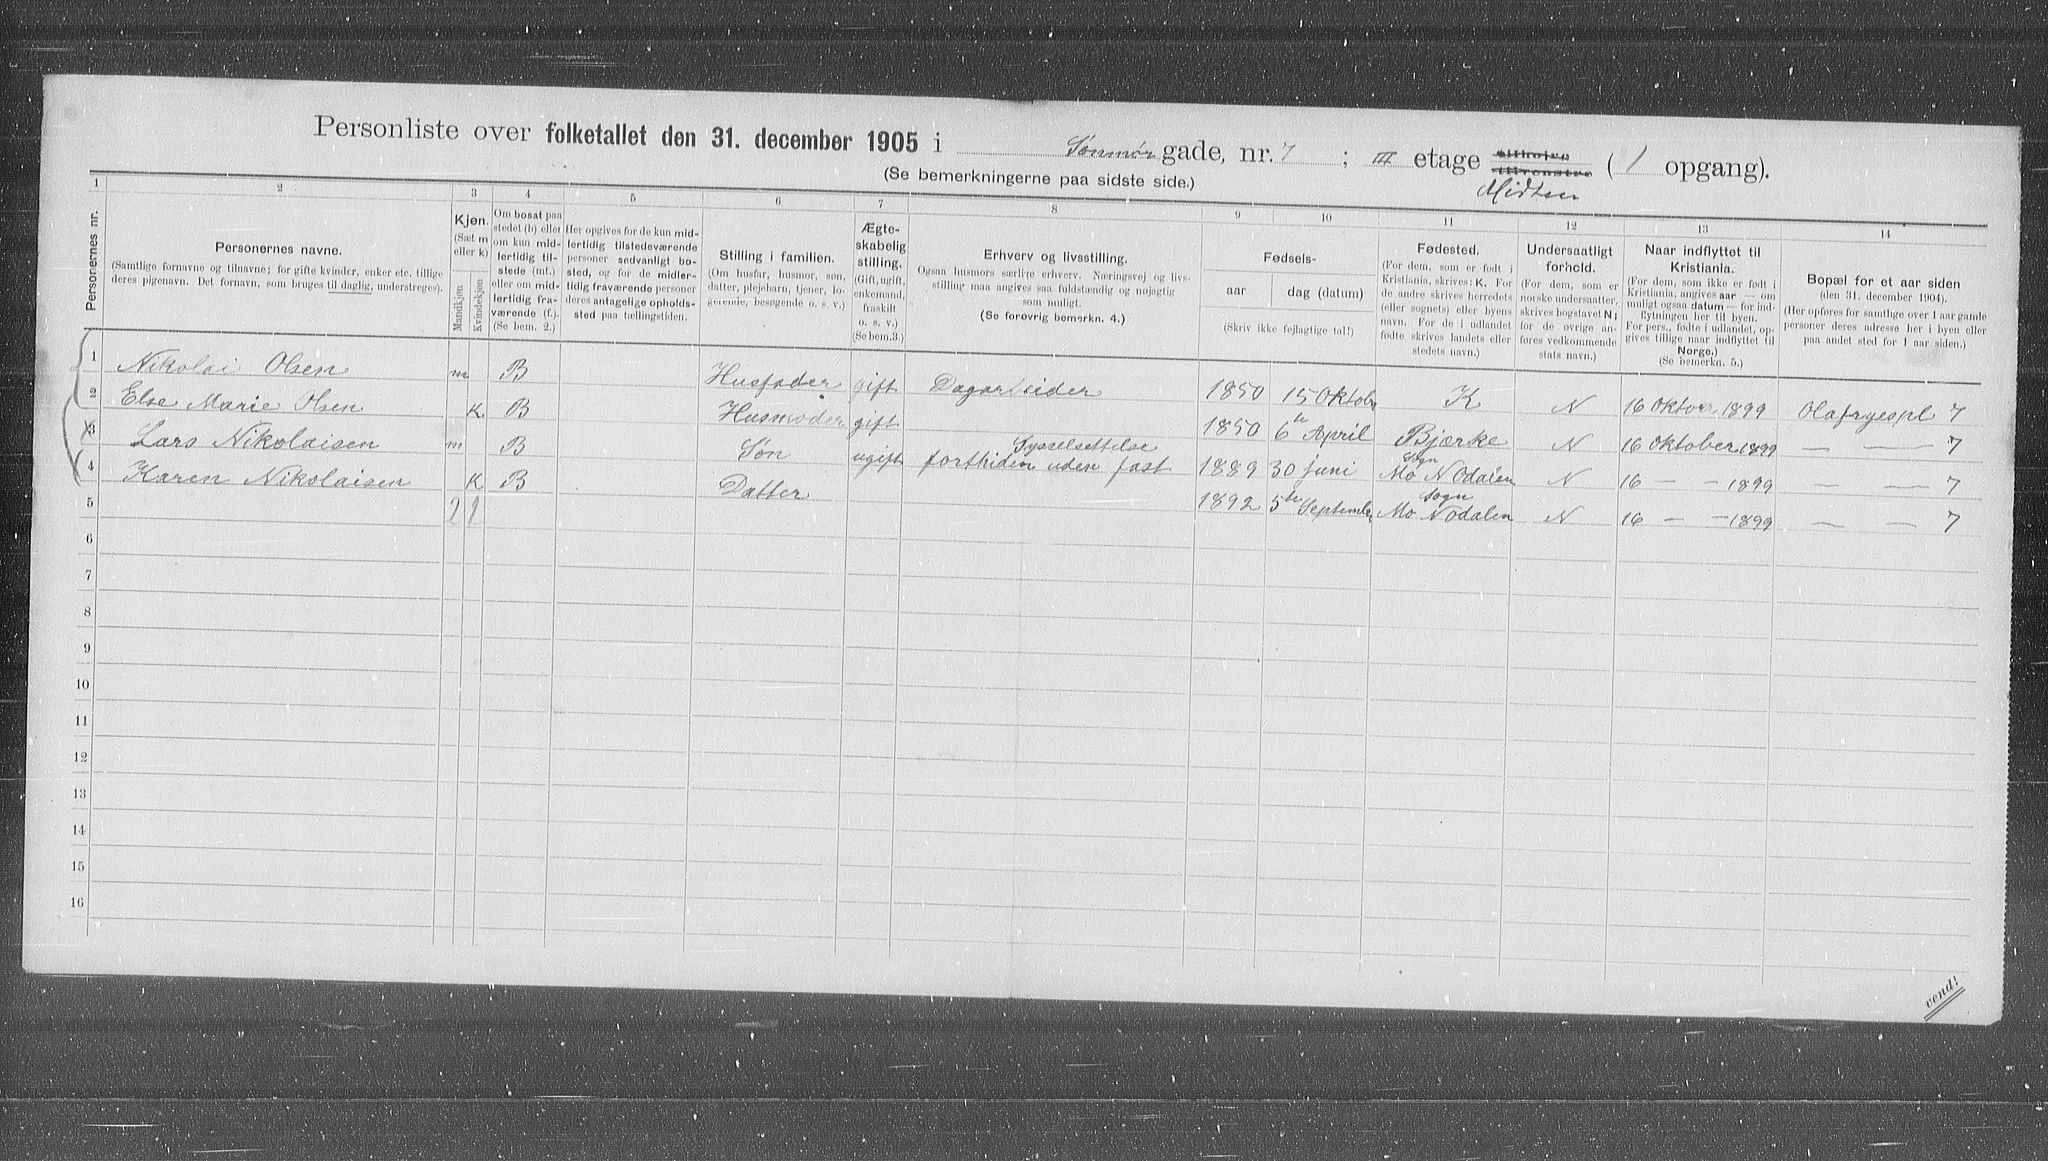 Personliste over folketallet den 31. december 1905 i Sønmør gade, nr. 7 ; III etage tilhøjre tilvenstre Midten ( 1 opgang).
(Se bemerkningerne paa sidste side.)
1 2 3 4 5 6 7 8 9 10 11 12 13 14
Personernes nr.
Personernes navne.
(Samtlige fornavne og tilnavne; for gifte kvinder, enker etc. tillige
deres pigenavn. Det fornavn, som bruges til daglig, understreges).
Kjøn.
(Sæt m
eller k)
Mandkjøn
Kvindekjøn
Om bosat paa
stedet (b) eller
om kun mid-
lertidig til-
stede (mt.)
eller om mid-
lertidig fra-
værende (f.).
(Se bem. 2.)
Her opgives for de kun mid-
lertidig tilstedeværende
personer sedvanligt bo-
sted, og for de midler-
tidig fraværende personer
deres antagelige opholds-
sted paa tællingstiden.
Stilling i familien.
(Om husfar, husmor, søn,
datter, plejebarn, tjener, lo-
gerende, besøgende o. s. v.)
Ægte-
skabelig
stilling.
(Gift, ugift,
enkemand,
fraskilt
o. s. v.)
(Se bem.3.)
Erhverv og livsstilling.
Ogsaa husmors særlige erhverv. Næringsvej og livs-
stilling maa angives saa fuldstændig og nøjagtig
som muligt.
(Se forøvrig bemerkn. 4.)
Fødsels-
aar dag (datum)
(Skriv ikke fejlagtige tal!)
Fødested.
(For dem, som er født i
Kristiania, skrives: K. For
de andre skrives herredets
(eller sognets) eller byens
navn. For de i udlandet
fødte skrives landets eller
stedets navn.)
Undersaatligt
forhold.
(For dem, som er
norske undersaatter,
skrives bogstavet N;
for de øvrige an-
føres vedkommende
stats navn.)
Naar indflyttet til
Kristiania.
(For dem, som ikke er født i
Kristiania, angives aar — om
muligt ogsaa datum — for ind-
flytningen her til byen.
For pers., fødte i udlandet, op-
gives tillige naar indflyttet til
Norge.)
(Se bemerkn. 5.)
Bopæl for et aar siden
(den 31. december 1904).
(Her opføres for samtlige over 1 aar gamle
personer deres adresse her i byen eller
paa andet sted for 1 aar siden.)
1 Nikolai Olsen m B Husfader gift Dagarbeider 1850 15 Oktobr K N 16 Oktoer 1899 Olafryespl 7
2 Else Marie Olsen K B Husmoder gift 1850 6te April Bjærke N 16 Oktober 1899 — — 7
3 Lars Nikolaisen m B Søn ugift Sysselsettelse forthiden uden fast 1889 30 juni Sogn Mo N Odalen N 16 — — 1899 — — 7
4 Karen Nikolaisen K B Datter 1892 5te September Sogn Mo N Odalen N 16 — — 1899 — — 7
5 2 2
6
7
8
9
10
11
12
13
14
15
16
vend!